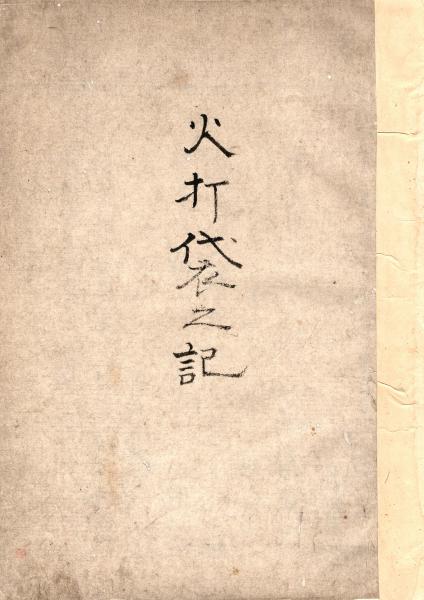 火打袋之記